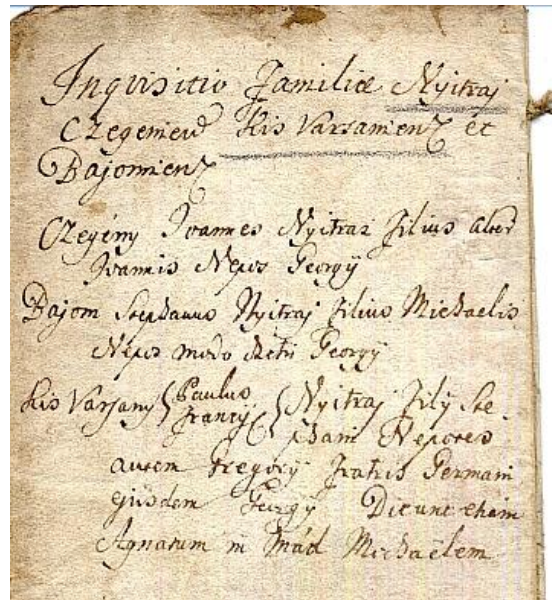 Inquisitio Familiæ Nyitraj
Czegeniens Kis Varsaniens et
Bajomiens
Czegény Joannes Nyitrai Filius alter
Joannis Nepos Georgÿ
Bajom Stephanus Nyitraj Filius Michaelis
Nepos modo dicti Georgÿ
Kis Varsany Paulus Francÿ Nyitraj Filÿ Ste
phani Nepotes
autem Gregorÿ Fratris Germani
ejusdem Georgÿ Dicunt etiam
Agnatum in Mád Michaëlem